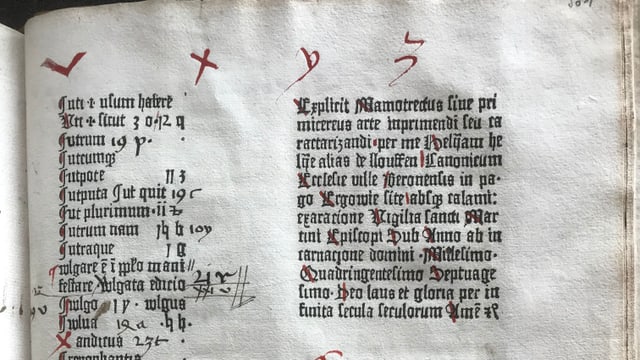 v x y z
Uti ÷ usum habere
Uti ÷ sicut 30 12 q
Utrum 19 p.
Utcumqꝫ
Utpote ȷȷ 3
Utputa Ut quie 19 c
Ut plurimum · ii z
Utrum nam ȷh h 10y
Utraque ȷ g
festare Vulgata edicio
Vulgo 1y · vulgus
Vulua 12 a · h h ·
Xandicus 23 t ·
Explicit Mamotrectus siue pri
micereus arte inprimendi seu ca
ractarizandi · per me Helyam he
lye alias de llouffen Canonicum
Ecclesie ville Beronensis in pa·
go Ergowie site absqꝫ calami:
exaracione Vigilia sancti Mar
tini Episcopi Sub Anno ab in
carnacione domini · Millesimo·
Quadringentesimo Septuage
simo· Deo laus et gloria per in
finita secula seculorum Amē